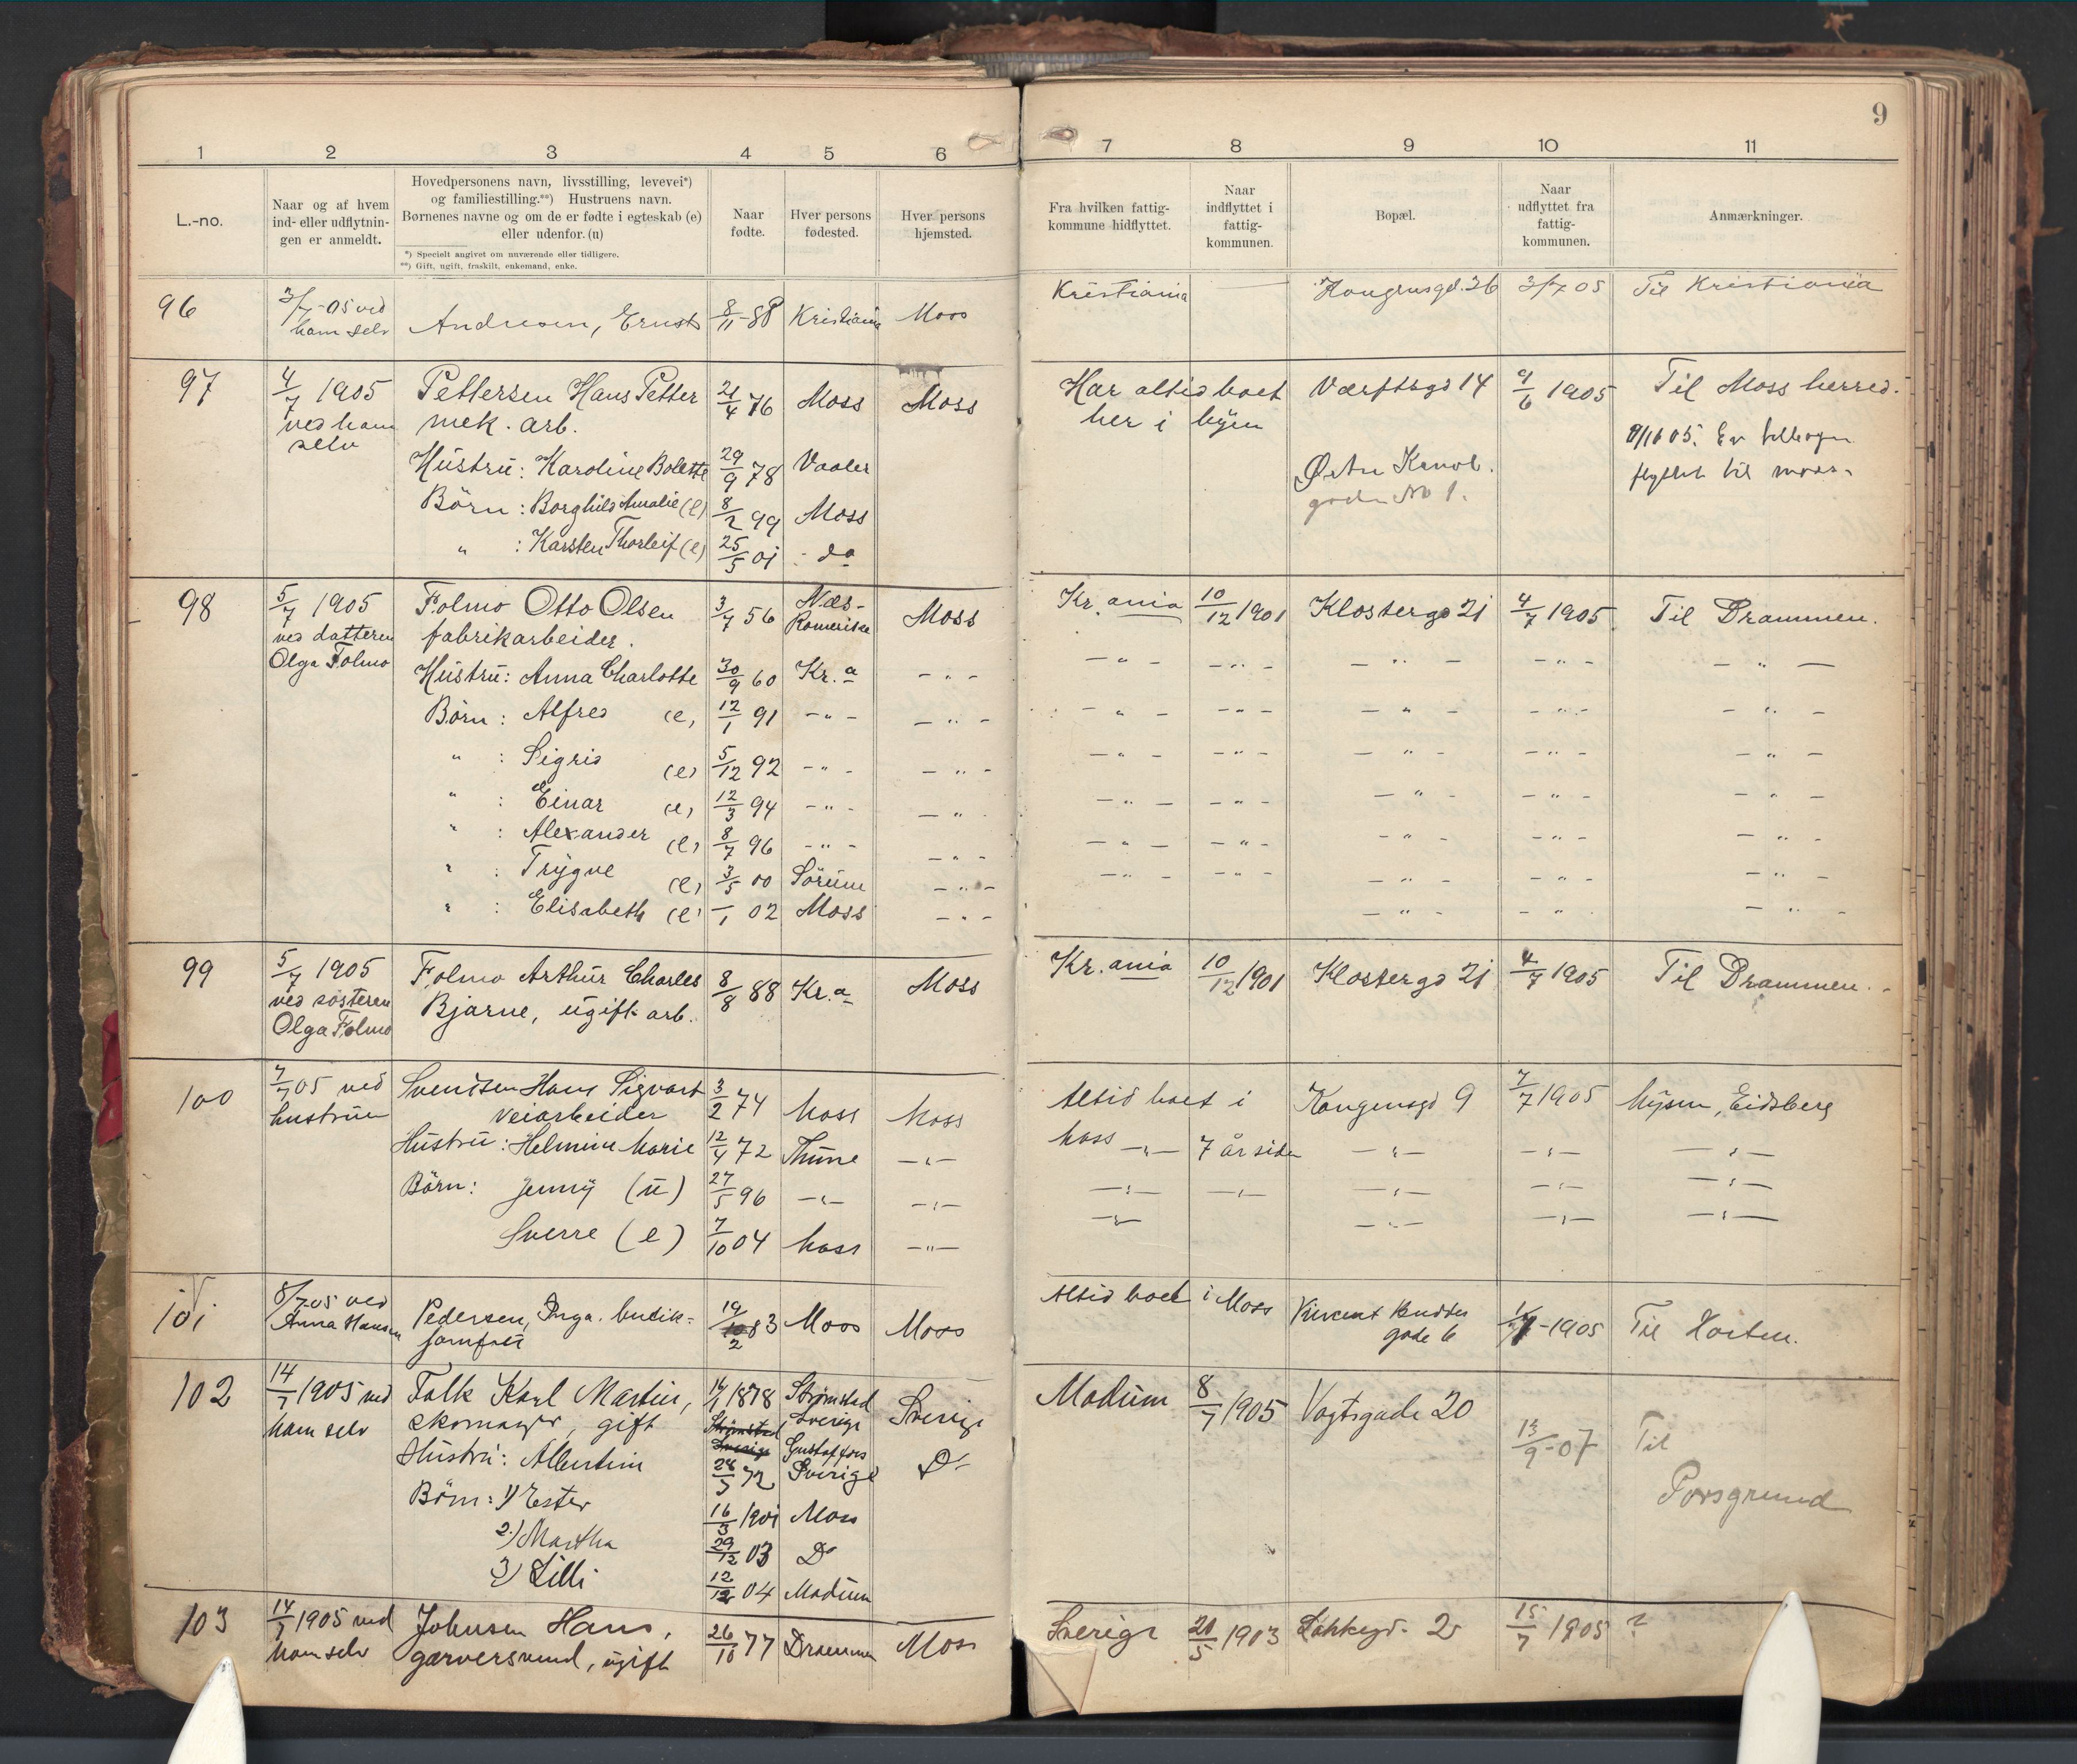 9
1 2 3 4 5 6 7 8 9 10 11
L.-no.
Naar og af hvem
ind- eller udflytnin-
gen er anmeldt.
Hovedpersonens navn, livsstilling, levevei*)
og familiestilling.**) Hustruens navn.
Børnenes navne og om de er fødte i egteskab (e)
eller udenfor. (u)
*) Specielt angivet om nuværende eller tidligere.
**) Gift, ugift, fraskilt, enkemand, enke.
Naar
fødte.
Hver persons
fødested.
Hver persons
hjemsted.
Fra hvilken fattig-
kommune hidflyttet.
Naar
indflyttet i
fattig-
kommunen.
Bopæl.
Naar
udflyttet fra
fattig-
kommunen.
Anmærkninger.
96 3/7-05 ved Kristiania Kongensgd. 26 3/7 05 Til Kristiania
ham selv Andresen, Ernst 8/11-88 Kristiania Moss
97 4/7 1905 Pettersen Hans Petter 21/4 76 Moss Moss Har altid boet Værftsgd 14 9/6 1905 Til Moss herred.
ved ham mek. arb. her i byen
selv
Hustru: Karoline Bolette 29/9 78 Vaaler Østre Kanal. flyttet til Moss.
Børn: Borghild Amalie (e) 8/2 99 Moss gaden No 1.
" : Karsten Thorleif (e) 25/5 01 - do
98 5/7 1905 Folmo Otto Olsen 3/7 56 Næs- Moss Kr.ania 10/12 1901 Klostergd 21 4/7 1905 Til Drammen.
ved datteren fabrikarbeider. Romerike
Olga Folmo Hustru: Anna Charlotte 30/9 60 Kr.a - " - - " - - " - - " - - " - - " -
Børn: Alfred (e) 12/1 91 - " - - " - - " - - " - - " - - " - - " -
" : Sigrid (e) 5/12 92 - " - - " - - " - - " - - " - - " - - " -
" : Einar (e) 12/3 94 - " - - " - - " - - " - - " - - " - - " -
" : Alexander (e) 8/7 96 - " - - " - - " - - " - - " - - " - - " -
" : Trygve (e) 3/5 00 Sörum - " - - " - - " - - " - - " - - " -
" : Elisabeth (e) -/1 02 Moss - " - - " - - " - - " -
99 5/7 1905 Folmo Arthur Charles 8/8 88 Kr.a Moss Kr.ania 10/12 1901 Klostergd 21 4/7 1905 Til Drammen.
ved søsteren Bjarne, ugift arb.
Olga Folmo
100 7/7 05 ved Svendsen Hans Sigvart 3/2 74 Moss Moss Altid boet i Kongensgd 9 7/7 1905 Mysen, Eidsberg
hustruen veiarbeider Moss
Hustru: Helmine Marie 12/4 72 Thune - " - - " - 7 år siden - " - - " - - " -
Børn: Jenny (u) 27/5 96 - " - - " - - " - - " - - " - - " - - " -
Sverre (e) 7/10 04 Moss - " - - " - - " - - " - - " -
101 8/7 05 ved Pedersen, Inga. butik- 19/2 83 Moss Moss Altid boet i Moss Vincent Buddes -1905 Til Horten.
Anna Hansen jomfru gade 6
102 14/7 1905 ved Falk Karl Martin, 1878 Strömstad Sverige Modum 8/7 1905 Vogtsgade 20 13/9-07 Til
ham selv skomager, gift Strömstad Sverige Sverige Porsgrund
Hustru: Albertine 28/3 72 Gustaffors Sverige Do
Børn: 1) Ester 16/3 1901 Moss
2) Martha 29/12 03 Do
3) Lilli 12/12 04 Modum
103 14/7 1905 ved Johnsen Hans, 26/10 77 Drammen Moss Sverige 20/5 1903 15/7 1905 ?
ham selv garversvend, ugift